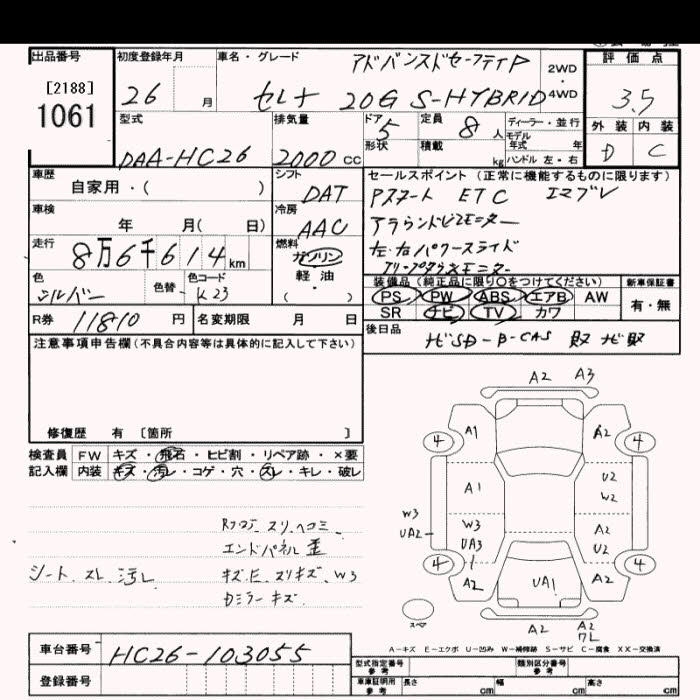 出品番号
[2188]
1061
初度登録年月
26 月
車名・グレード
アドバンスドセーフティP
セレナ 20G S-HYBRID
2WD・4WD
評価点
3.5
外装 内装
D C
型式
DAA-HC26
排気量
2000 cc
ドア 5
形状
定員 8 人
積載 kg
ディーラー・並行
モデル年式 年
ハンドル 左・右
車歴
自家用・( )
シフト
DAT
車検
年 月( 日)
冷房
AAC
走行
8万6千614km
燃料
ガソリン
軽油
・( )
色
シルバー
色替
色コード
K23
R券 11810 円
名変期限 月 日
セールスポイント(正常に機能するものに限ります)
Pスタート ETC エマブレ
アラウンドビューモニター
左右パワースライド
装備品(純正品に限り○をつけてください)
PS PW ABS エアB AW
SR ナビ TV カワ
新車保証書
有・無
後日品
ナビSD B-CAS 取 ナビ取
注意事項申告欄(不具合内容等は具体的に記入して下さい)
修復歴 有 〔箇所 〕
検査員記入欄
FW キズ・飛石・ヒビ割・リペア跡・×要
内装 キズ・汚レ・コゲ・穴・スレ・キレ・破レ
Rフロア スリ、ヘコミ
エンドパネル 歪
シート スレ 汚レ
キズE スリキズ W3
Dミラー キズ
A2 A3
4 A1 A2 4
A1 U2 W2
W3 UA2 W3 UA3 A2 U2
4 A2 UA1 A2 4
スペア
A2 A2 ワレ
A-キズ E-エクボ U-凹み W-補修跡 S-サビ C-腐食 XX-交換済
車台番号 HC26-103055
登録番号
型式指定番号 参考
類別区分番号 参考
車庫証明用 参考
長さ cm 幅 cm 高さ cm